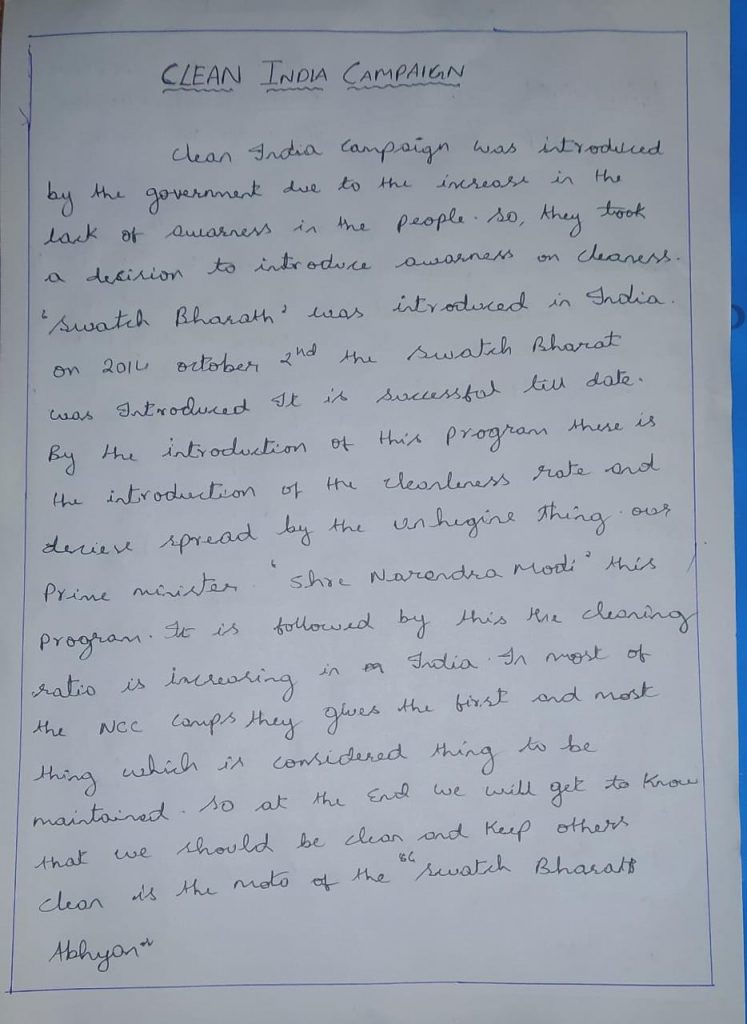 CLEAN INDIA CAMPAIGN
Clean India Campaign was introduced
by the government due to the increase in the
lack of awarness in the people. So, they took
a decision to introduce awarness on cleaness.
'Swatch Bharath' was introduced in India.
on 2014 october 2nd the Swatch Bharat
was Introduced It is successful till date.
By the introduction of this program there is
the introduction of the cleanleness rate and
deciese spread by the unhegine thing. our
Prime minister 'Shre Narendra Modi' this
program. It is followed by this the cleaning
ratio is increasing in India. In most of
the NCC camps they gives the first and most
thing which is considered thing to be
maintained. So at the End we will get to know
that we should be clean and keep others
clean is the moto of the "Swatch Bharath
Abhyan"